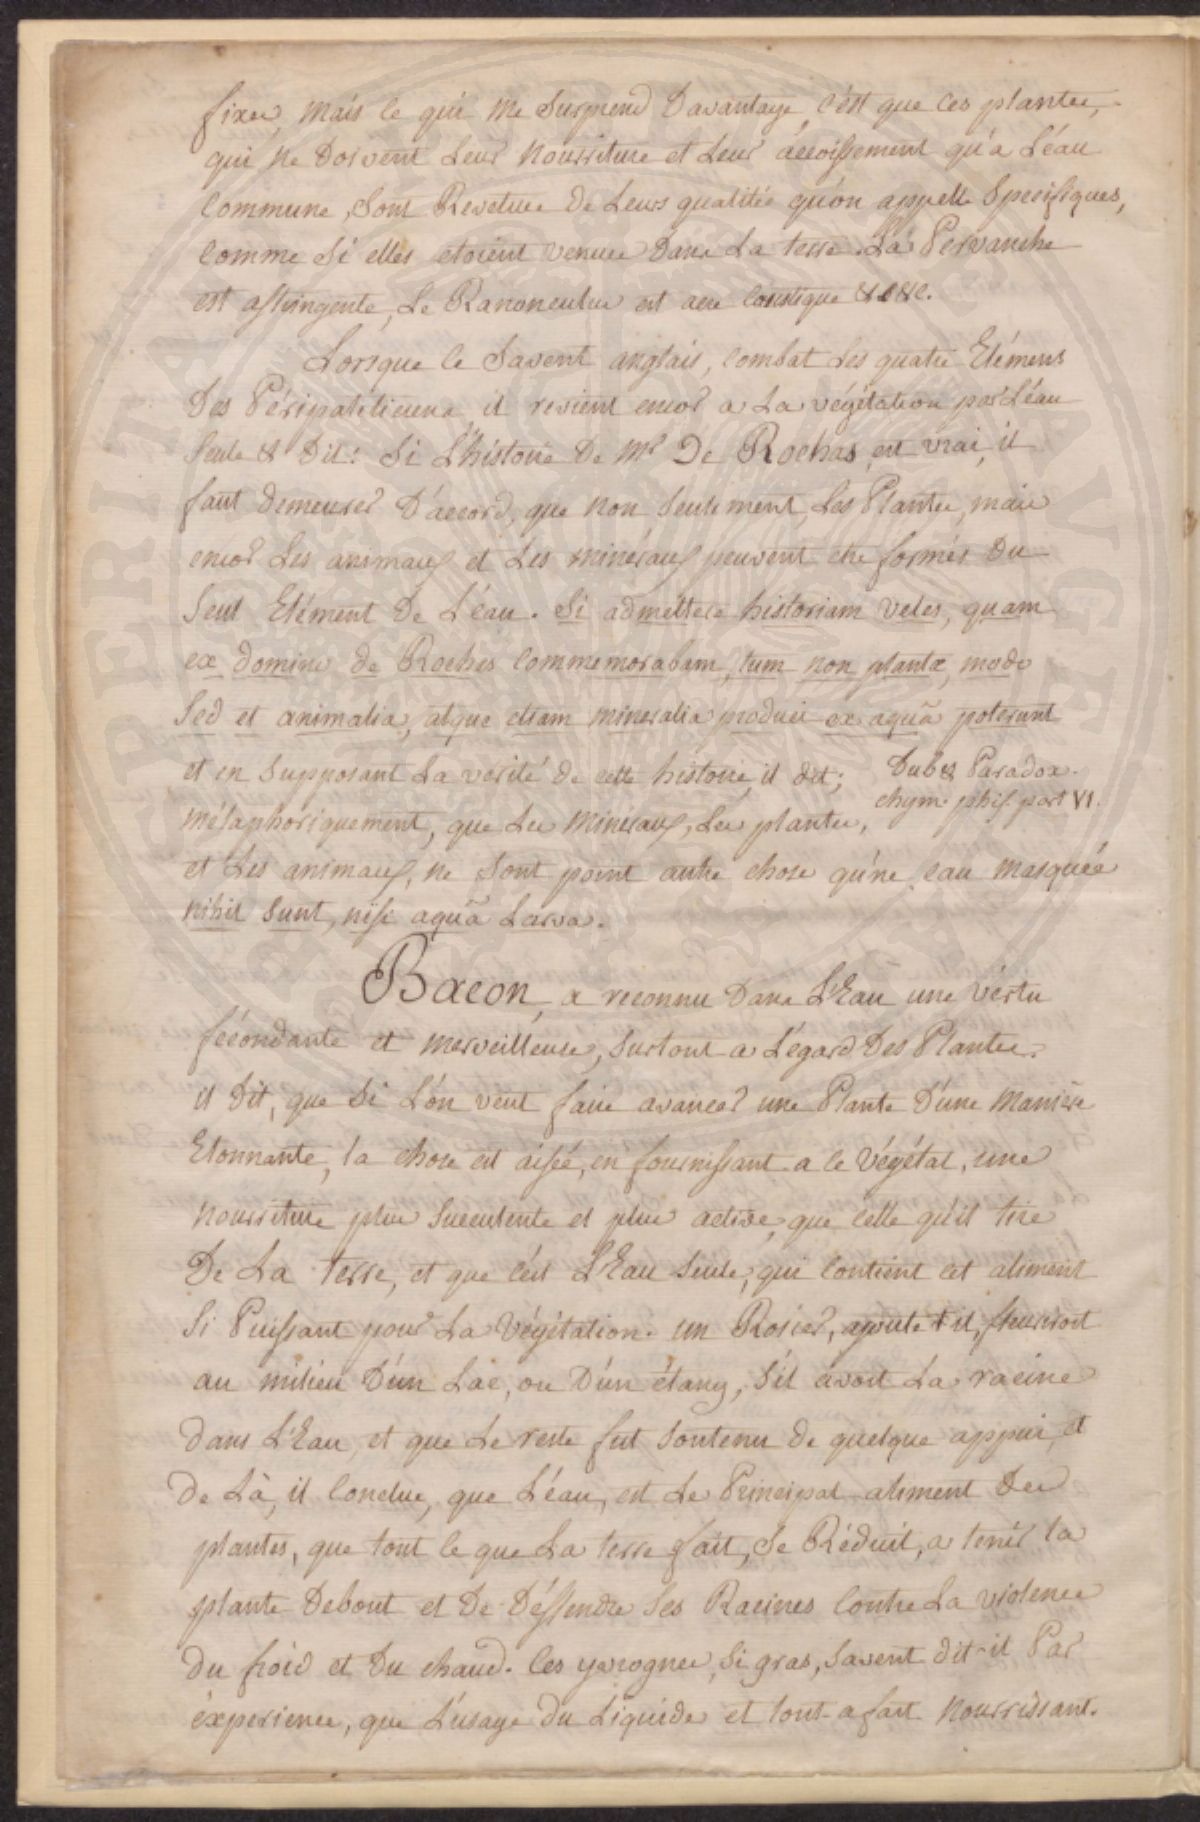 fixes, mais ce qui me surprend Davantage, c'est que ces plantes,
qui ne Doivent Leur nourriture et Leur accoissement qu'a L'éau
Commune, sont Revetues De Leurs qualités qu'on appelle Specifiques,
comme si elles etoient venues Dans La terre. La Pervanche
est astringente, Le Ranoncules est acre caustique &c &c.
Lorsque ce Savent anglais, combat Les quatre Elémens
Des Péripatéticiens, il revient encor a La végétation par L'éau
seule & Dit: Si L'histoire De Mr De Rochas, est vrai, il
faut demeurer D'accord, que non seulement, Les Plantes, mais
encor Les animaux et Les minéraux peuvent etre formés Du
seul Elément De L'éau. Si admettere historiam veles, quam
ex domino de Rochis commemorabam, tum non plantæ, modo
sed et animalia, atque etiam mineralia produci ex aquâ poterunt
et en supposant La verité de cette histoire, il dit;
Dub & Paradox.
chym. phis. part VI.
métaphoriquement, que Les Mineraux, Les plantes,
et Les animaux, ne sont point autre chose qu'ne eau masquée
nihil sunt, nisi aquâ Larva.
Bacon, a reconnu Dans L'Eau une vértu
fécondante et merveilleuse, surtout a L'égard Des Plantes.
il Dit, que si L'on veut faire avancer une Plante D'une manière
Etonnante, la chose est aisée, en fournissant a ce Végétal, une
nourriture plus succulente et plus active, que celle qu'il tire
De La terre, et que c'est L'Eau seule, qui contient cet aliment
si Puissant pour La Végétation. un Rosier, ajoute t il, fleuriroit
au milieu D'un Lac, ou D'un étang, s'il avoit La racine
dans L'Eau, et que Le reste fut soutenu de quelque appui, et
de Là, il Conclue, que L'éau, est Le Principal aliment Des
plantes, que tout ce que La terre fait, se Réduit, a tenir la
plante Debout et De Déffendre ses Racines contre La violence
du froid et Du chaud. Ces yvrognes, si gras, savent dit-il Par
éxperience, que L'usage Du Liquide et tout-afait Nourrissant.